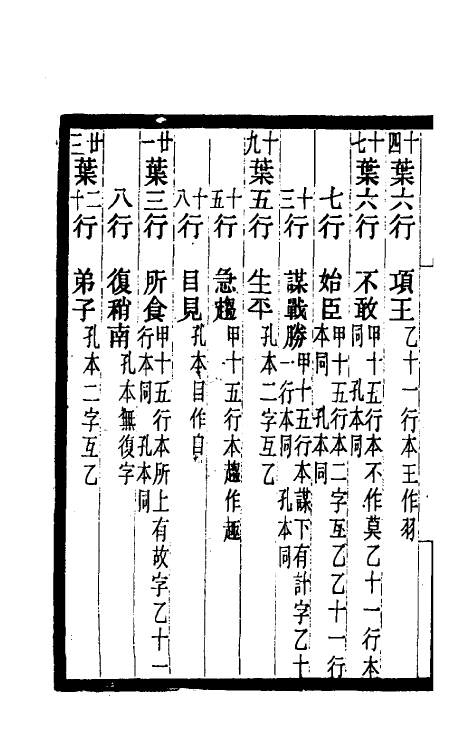 十四葉六行　項王乙十一行本王作羽
十七葉六行　不敢甲十五行本不作莫乙十一行本同　孔本同
七行　始臣甲十五行本二字互乙乙十一行本同　孔本同
十三行　謀戰勝甲十五行本謀下有計字乙十一行本同　孔本同
十九葉五行　生平孔本二字互乙
十五行　急趨甲十五行本趨作趣
十八行　目見孔本目作自
廿一葉三行　所食甲十五行本所上有故字乙十一行本同　孔本同
八行　復稍南孔本無復字
廿三葉十二行　弟子孔本二字互乙